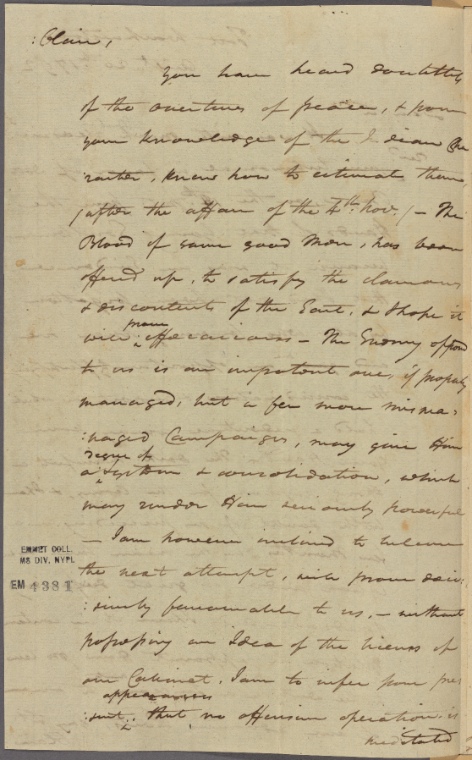 :Clair,
You have heard doubtless
of the overtures of peace, & from
your knowledge of the Indian Cha
racter, know how to estimate them
/after the affair of the 4th Nov./ – The
Blood of some good Men, has been
offered up, to satisfy the clamours
& discontents of the East, & I hope it
will prove efficacious – The Enemy opposed
to us is an impotent one, if properly
managed, but a few more misma:
:naged Campaigns, may give Him
a degree of system & consolidation, which
may render Him seriously powerful
– I am however inclined to believe
the next attempt, will prove deci:
:sively favourable to us, – without
possessing an Idea of the views of
our Cabinet, I am to infer from pre
:sent appearances, that no offensive operation is
meditated
EMMET COLL.
MS DIV. NYPL
EM 4381